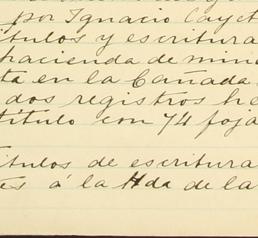 por Ignacio Cayet
tulos y escritura
hacienda de mine
ta en la Cañada
dos registros he
título con 74 foja
tulos de escritura
tes á la Hda de la